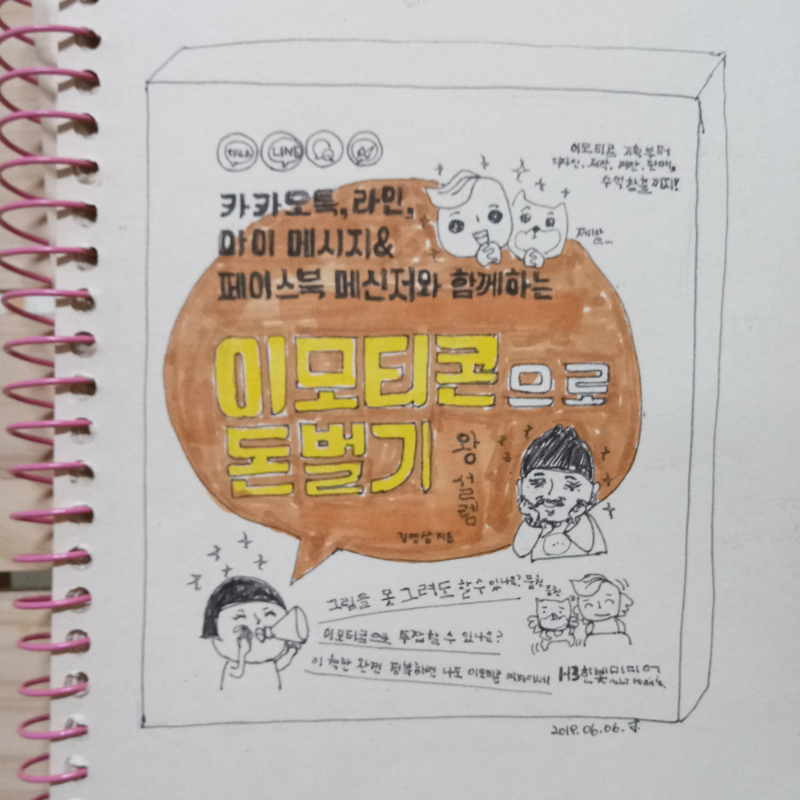 TALK LINE
이모티콘 기획부터
디자인, 제작, 제안, 판매,
수익창출까지!
카카오톡, 라인,
마이 메시지&
페이스북 메신저와 함께하는
제발...
이모티콘으로
돈벌기
왕 설렘
김영삼 지음
그림을 못 그려도 할 수 있나요?
이모티콘으로 투잡할 수 있나요?
이 책만 관련 정복하면 나도 이모티콘
HB한빛미디어
2019.06.06.